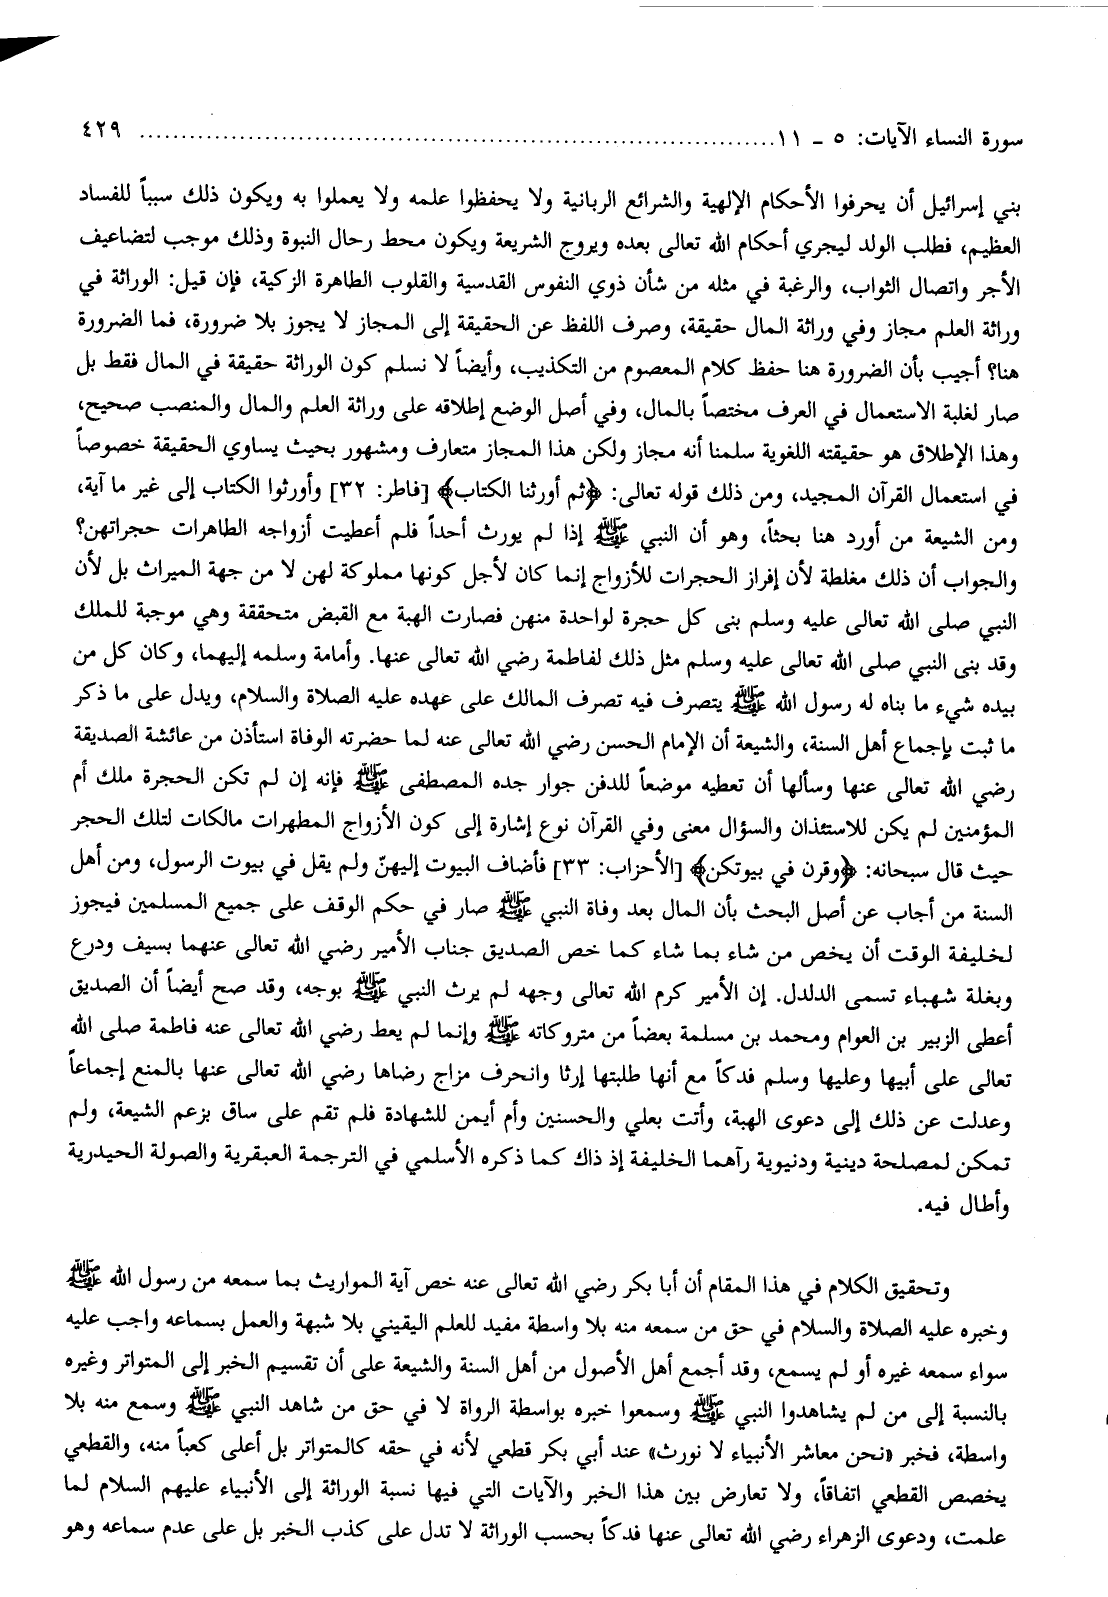 سورة النساء الآيات: ٥ ـ ١١ ........................................................................... ٤٢٩
بني إسرائيل أن يحرفوا الأحكام الإلهية والشرائع الربانية ولا يحفظوا علمه ولا يعملوا به ويكون ذلك سبباً للفساد
العظيم، فطلب الولد ليجري أحكام الله تعالى بعده ويروج الشريعة ويكون محط رحال النبوة وذلك موجب لتضاعيف
الأجر واتصال الثواب، والرغبة في مثله من شأن ذوي النفوس القدسية والقلوب الطاهرة الزكية، فإن قيل: الوراثة في
وراثة العلم مجاز وفي وراثة المال حقيقة، وصرف اللفظ عن الحقيقة إلى المجاز لا يجوز بلا ضرورة، فما الضرورة
هنا؟ أجيب بأن الضرورة هنا حفظ كلام المعصوم من التكذيب، وأيضاً لا نسلم كون الوراثة حقيقة في المال فقط بل
صار لغلبة الاستعمال في العرف مختصاً بالمال، وفي أصل الوضع إطلاقه على وراثة العلم والمال والمنصب صحيح،
وهذا الإطلاق هو حقيقته اللغوية سلمنا أنه مجاز ولكن هذا المجاز متعارف ومشهور بحيث يساوي الحقيقة خصوصاً
في استعمال القرآن المجيد، ومن ذلك قوله تعالى: ﴿ثم أورثنا الكتاب﴾ [فاطر: ٣٢] وأورثوا الكتاب إلى غير ما آية،
ومن الشيعة من أورد هنا بحثاً، وهو أن النبي ﷺ إذا لم يورث أحداً فلم أعطيت أزواجه الطاهرات حجراتهن؟
والجواب أن ذلك مغلطة لأن إفراز الحجرات للأزواج إنما كان لأجل كونها مملوكة لهن لا من جهة الميراث بل لأن
النبي صلى الله تعالى عليه وسلم بنى كل حجرة لواحدة منهن فصارت الهبة مع القبض متحققة وهي موجبة للملك
وقد بنى النبي صلى الله تعالى عليه وسلم مثل ذلك لفاطمة رضي الله تعالى عنها. وأمامة وسلمه إليهما، وكان كل من
بيده شيء ما بناه له رسول الله ﷺ يتصرف فيه تصرف المالك على عهده عليه الصلاة والسلام، ويدل على ما ذكر
ما ثبت بإجماع أهل السنة، والشيعة أن الإمام الحسن رضي الله تعالى عنه لما حضرته الوفاة استأذن من عائشة الصديقة
رضي الله تعالى عنها وسألها أن تعطيه موضعاً للدفن جوار جده المصطفى ﷺ فإنه إن لم تكن الحجرة ملك أم
المؤمنين لم يكن للاستئذان والسؤال معنى وفي القرآن نوع إشارة إلى كون الأزواج المطهرات مالكات لتلك الحجر
حيث قال سبحانه: ﴿وقرن في بيوتكن﴾ [الأحزاب: ٣٣] فأضاف البيوت إليهنّ ولم يقل في بيوت الرسول، ومن أهل
السنة من أجاب عن أصل البحث بأن المال بعد وفاة النبي ﷺ صار في حكم الوقف على جميع المسلمين فيجوز
لخليفة الوقت أن يخص من شاء بما شاء كما خص الصديق جناب الأمير رضي الله تعالى عنهما بسيف ودرع
وبغلة شهباء تسمى الدلدل. إن الأمير كرم الله تعالى وجهه لم يرث النبي ﷺ بوجه، وقد صح أيضاً أن الصديق
أعطى الزبير بن العوام ومحمد بن مسلمة بعضاً من متروكاته ﷺ وإنما لم يعط رضي الله تعالى عنه فاطمة صلى الله
تعالى على أبيها وعليها وسلم فدكاً مع أنها طلبتها إرثا وانحرف مزاج رضاها رضي الله تعالى عنها بالمنع إجماعاً
وعدلت عن ذلك إلى دعوى الهبة، وأتت بعلي والحسنين وأم أيمن للشهادة فلم تقم على ساق بزعم الشيعة، ولم
تمكن لمصلحة دينية ودنيوية رآهما الخليفة إذ ذاك كما ذكره الأسلمي في الترجمة العبقرية والصولة الحيدرية
وأطال فيه.
وتحقيق الكلام في هذا المقام أن أبا بكر رضي الله تعالى عنه خص آية المواريث بما سمعه من رسول الله ﷺ
وخبره عليه الصلاة والسلام في حق من سمعه منه بلا واسطة مفيد للعلم اليقيني بلا شبهة والعمل بسماعه واجب عليه
سواء سمعه غيره أو لم يسمع، وقد أجمع أهل الأصول من أهل السنة والشيعة على أن تقسيم الخبر إلى المتواتر وغيره
بالنسبة إلى من لم يشاهدوا النبي ﷺ وسمعوا خبره بواسطة الرواة لا في حق من شاهد النبي ﷺ وسمع منه بلا
واسطة، فخبر «نحن معاشر الأنبياء لا نورث» عند أبي بكر قطعي لأنه في حقه كالمتواتر بل أعلى كعباً منه، والقطعي
يخصص القطعي اتفاقاً، ولا تعارض بين هذا الخبر والآيات التي فيها نسبة الوراثة إلى الأنبياء عليهم السلام لما
علمت، ودعوى الزهراء رضي الله تعالى عنها فدكاً بحسب الوراثة لا تدل على كذب الخبر بل على عدم سماعه وهو